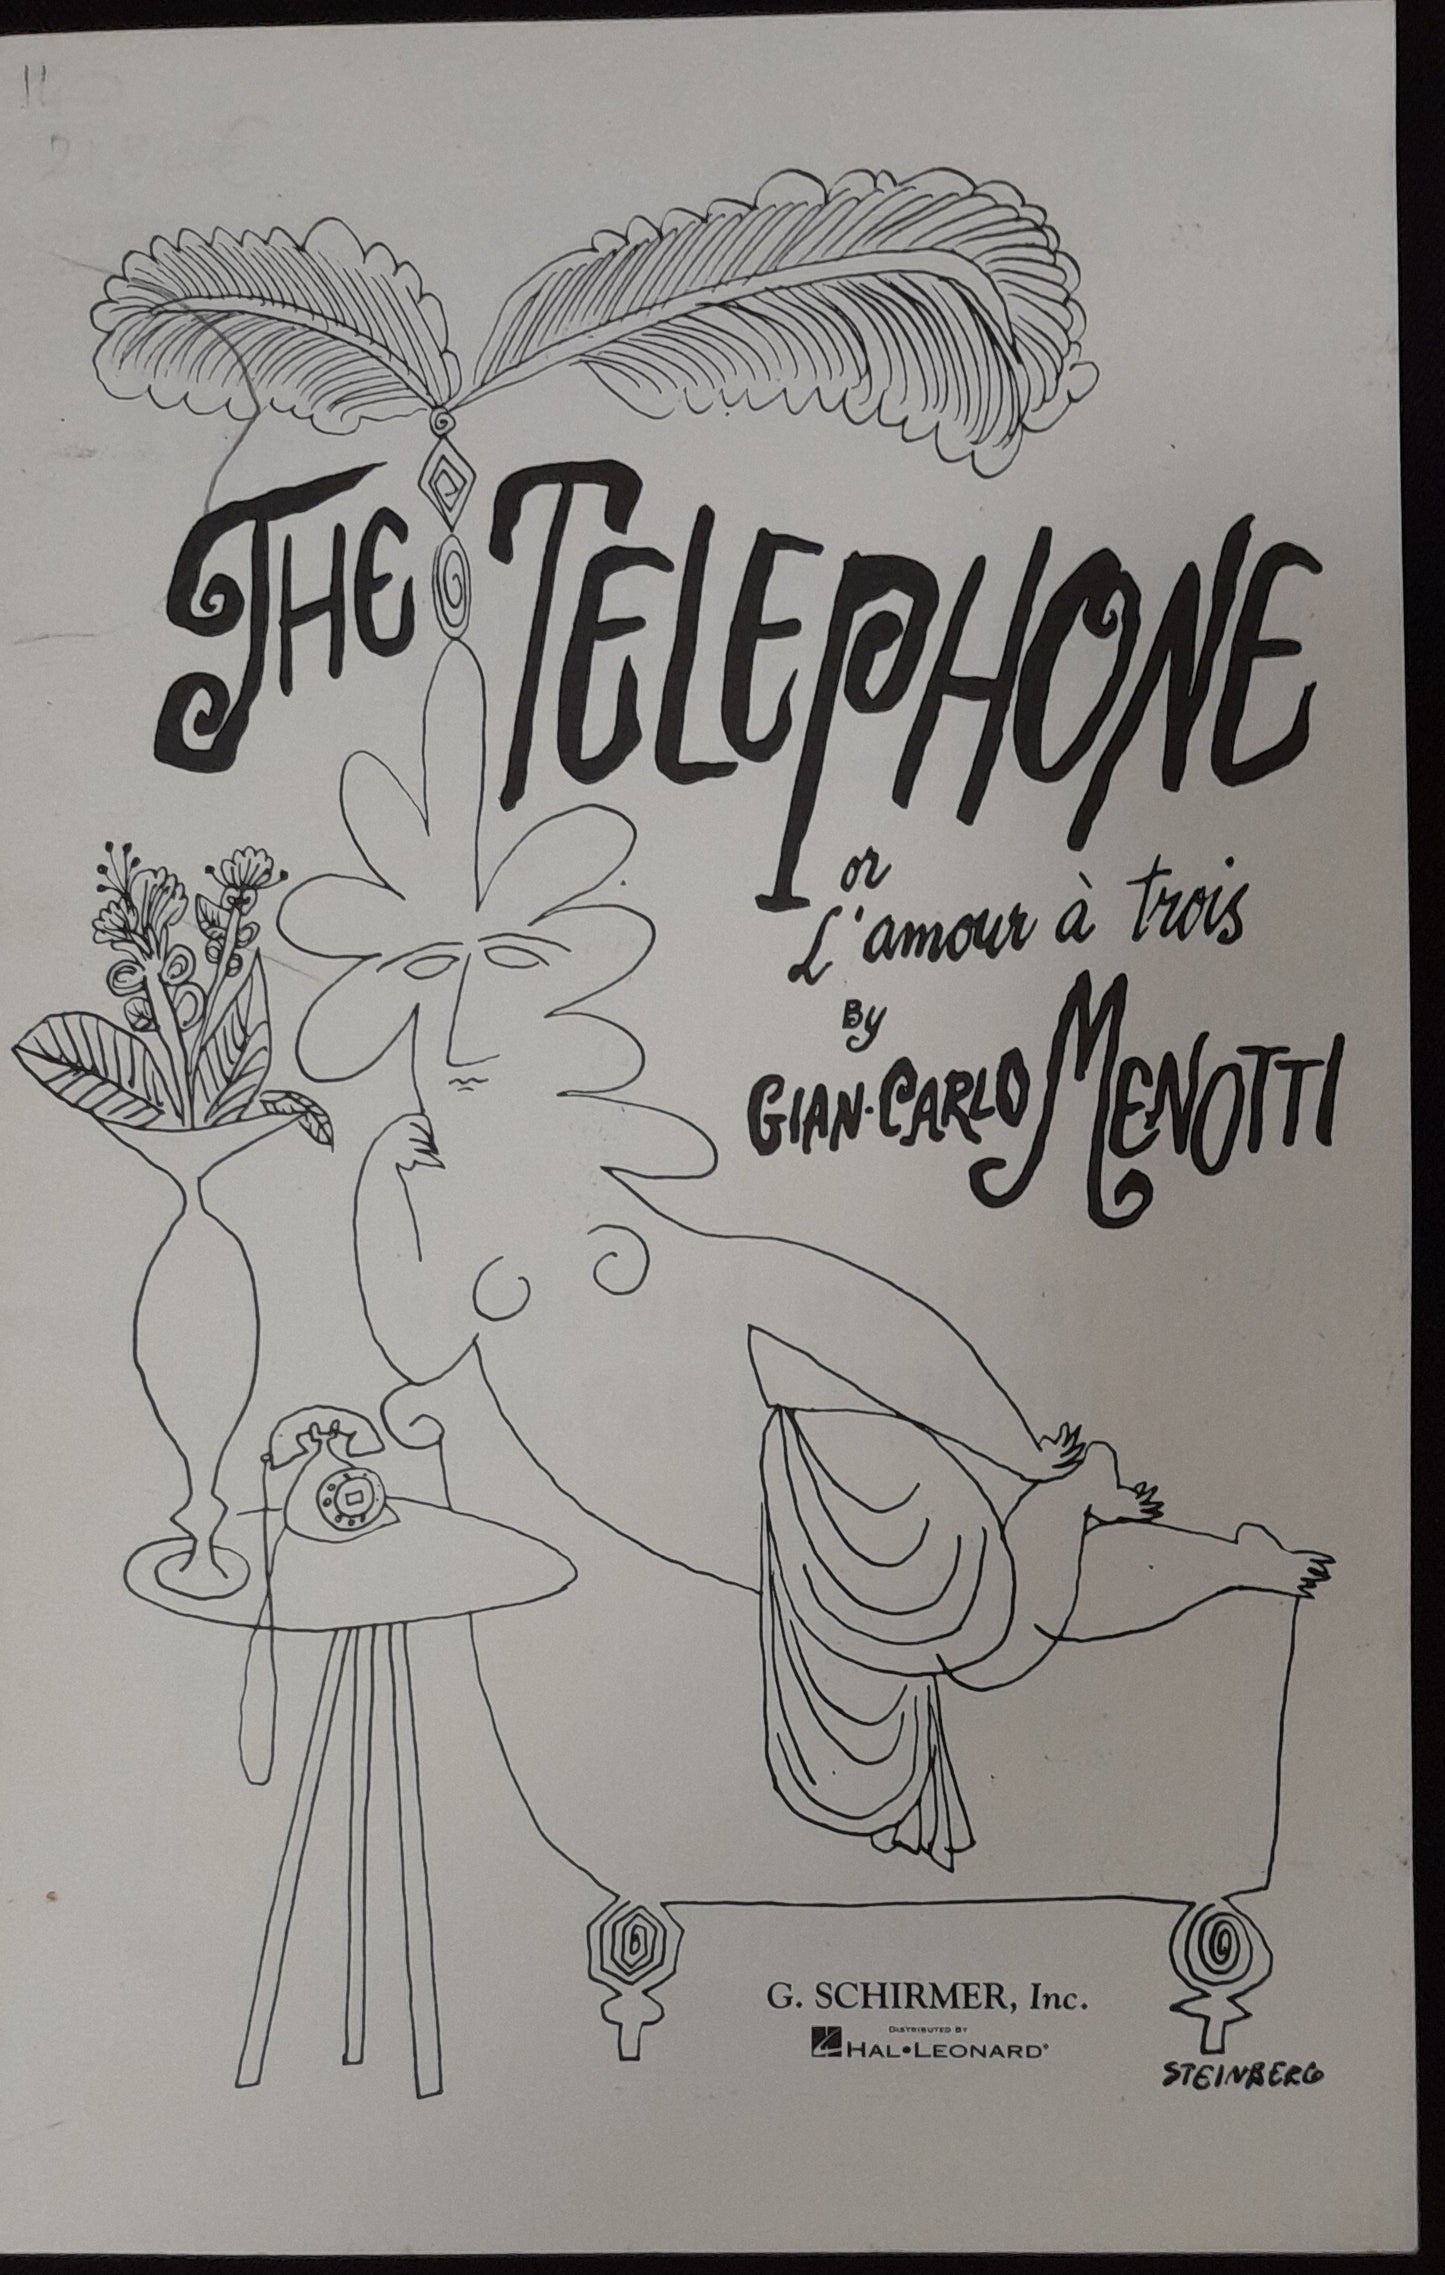 THE TELEPHONE
or
L'amour à trois
BY
GIAN-CARLO MENOTTI
G. SCHIRMER, Inc.
DISTRIBUTED BY
HAL•LEONARD®
STEINBERG